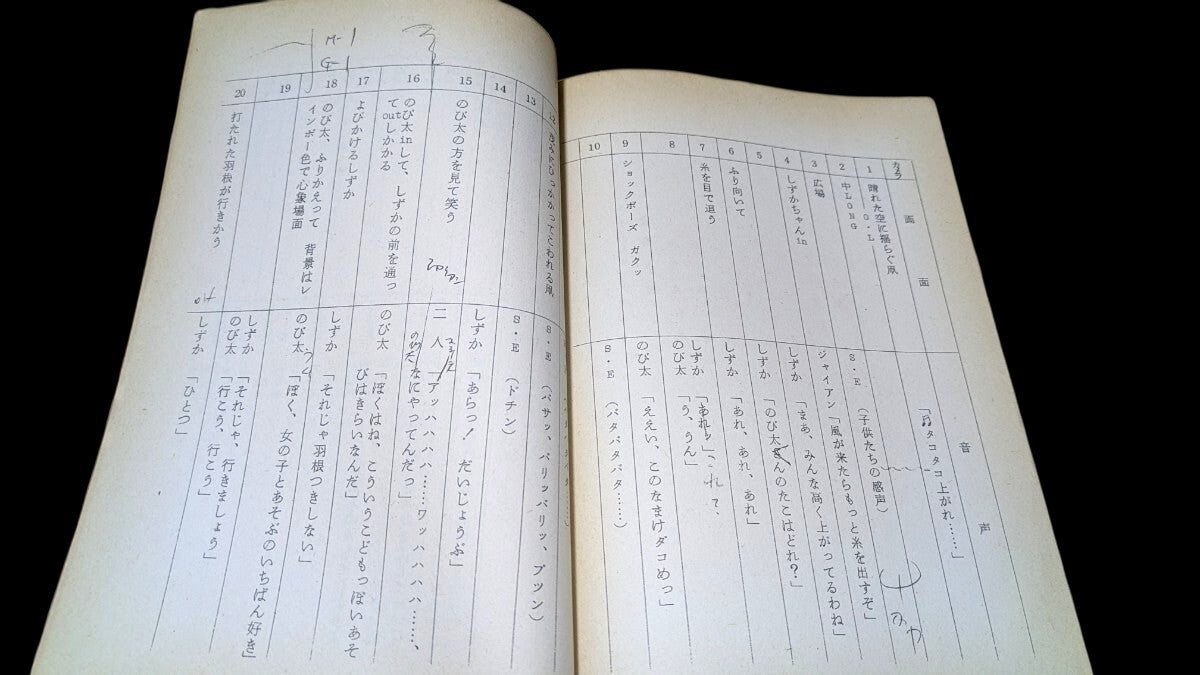 カラ
画　面
音　声
「♫タコタコ上がれ……」
1
晴れた空に揺らぐ凧
―O・L―
S・E（子供たちの感声）
2
中LONG
ジャイアン「風が来たらもっと糸を出すぞ」
3
広場
しずか「まあ、みんな高く上がってるわね」
4
しずかちゃんin
しずか「のび太さんのたこはどれ？」
5
しずか「あれ、あれ、あれ」
6
ふり向いて
しずか「あれッ」
これ？
7
糸を目で追う
のび太「う、うん」
8
のび太「ええい、このなまけダコめっ」
9
ショックポーズ ガクッ
10
S・E（パタパタパタ……）
12
13
S・E（バサッ、バリッバリッ、ブツン）
14
S・E（ドチン）
15
のび太の方を見て笑う
しずか「あらっ！　だいじょうぶ」
二人「アッハハハハ……ワッハハハハ……、
16
のび太inして、しずかの前を通っ
てoutしかかる
のび太
なにやってんだっ」
17
よびかけるしずか
のび太「ぼくはね、こういうこどもっぽいあそ
びはきらいなんだ」
18
のび太、ふりかえって　背景はレ
インボー色で心象場面
M-1
G-1
しずか「それじゃ羽根つきしない」
19
のび太「ぼく、女の子とあそぶのいちばん好き」
しずか「それじゃ、行きましょう」
のび太「行こう、行こう」
20
打たれた羽根が行きかう
しずか「ひとつ」